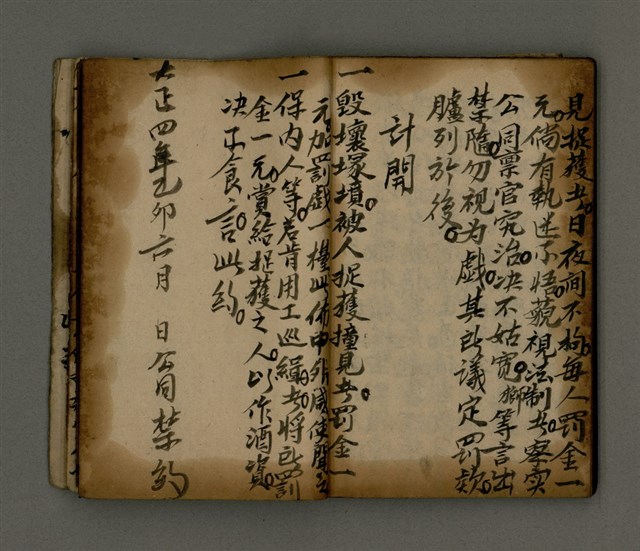 見捉獲者。日夜間不拘。每人罰金一
元。倘有執迷不悟。藐視法制者。察实
公同禀官究治。决不姑寬。獅等言出
禁隨。勿視为戲。其所議定罰款。
臚列於後。
計開
一毀壞塚墳。被人捉獲撞見者。罰金一
元。加罰戲一檯。此佈中外咸使聞之
一保内人等。若肯用工巡緝者。將所罰
金一元。賞給捉獲之人。以作酒資。
决不食言。此約。
大正四年乙卯六月　日公同禁約